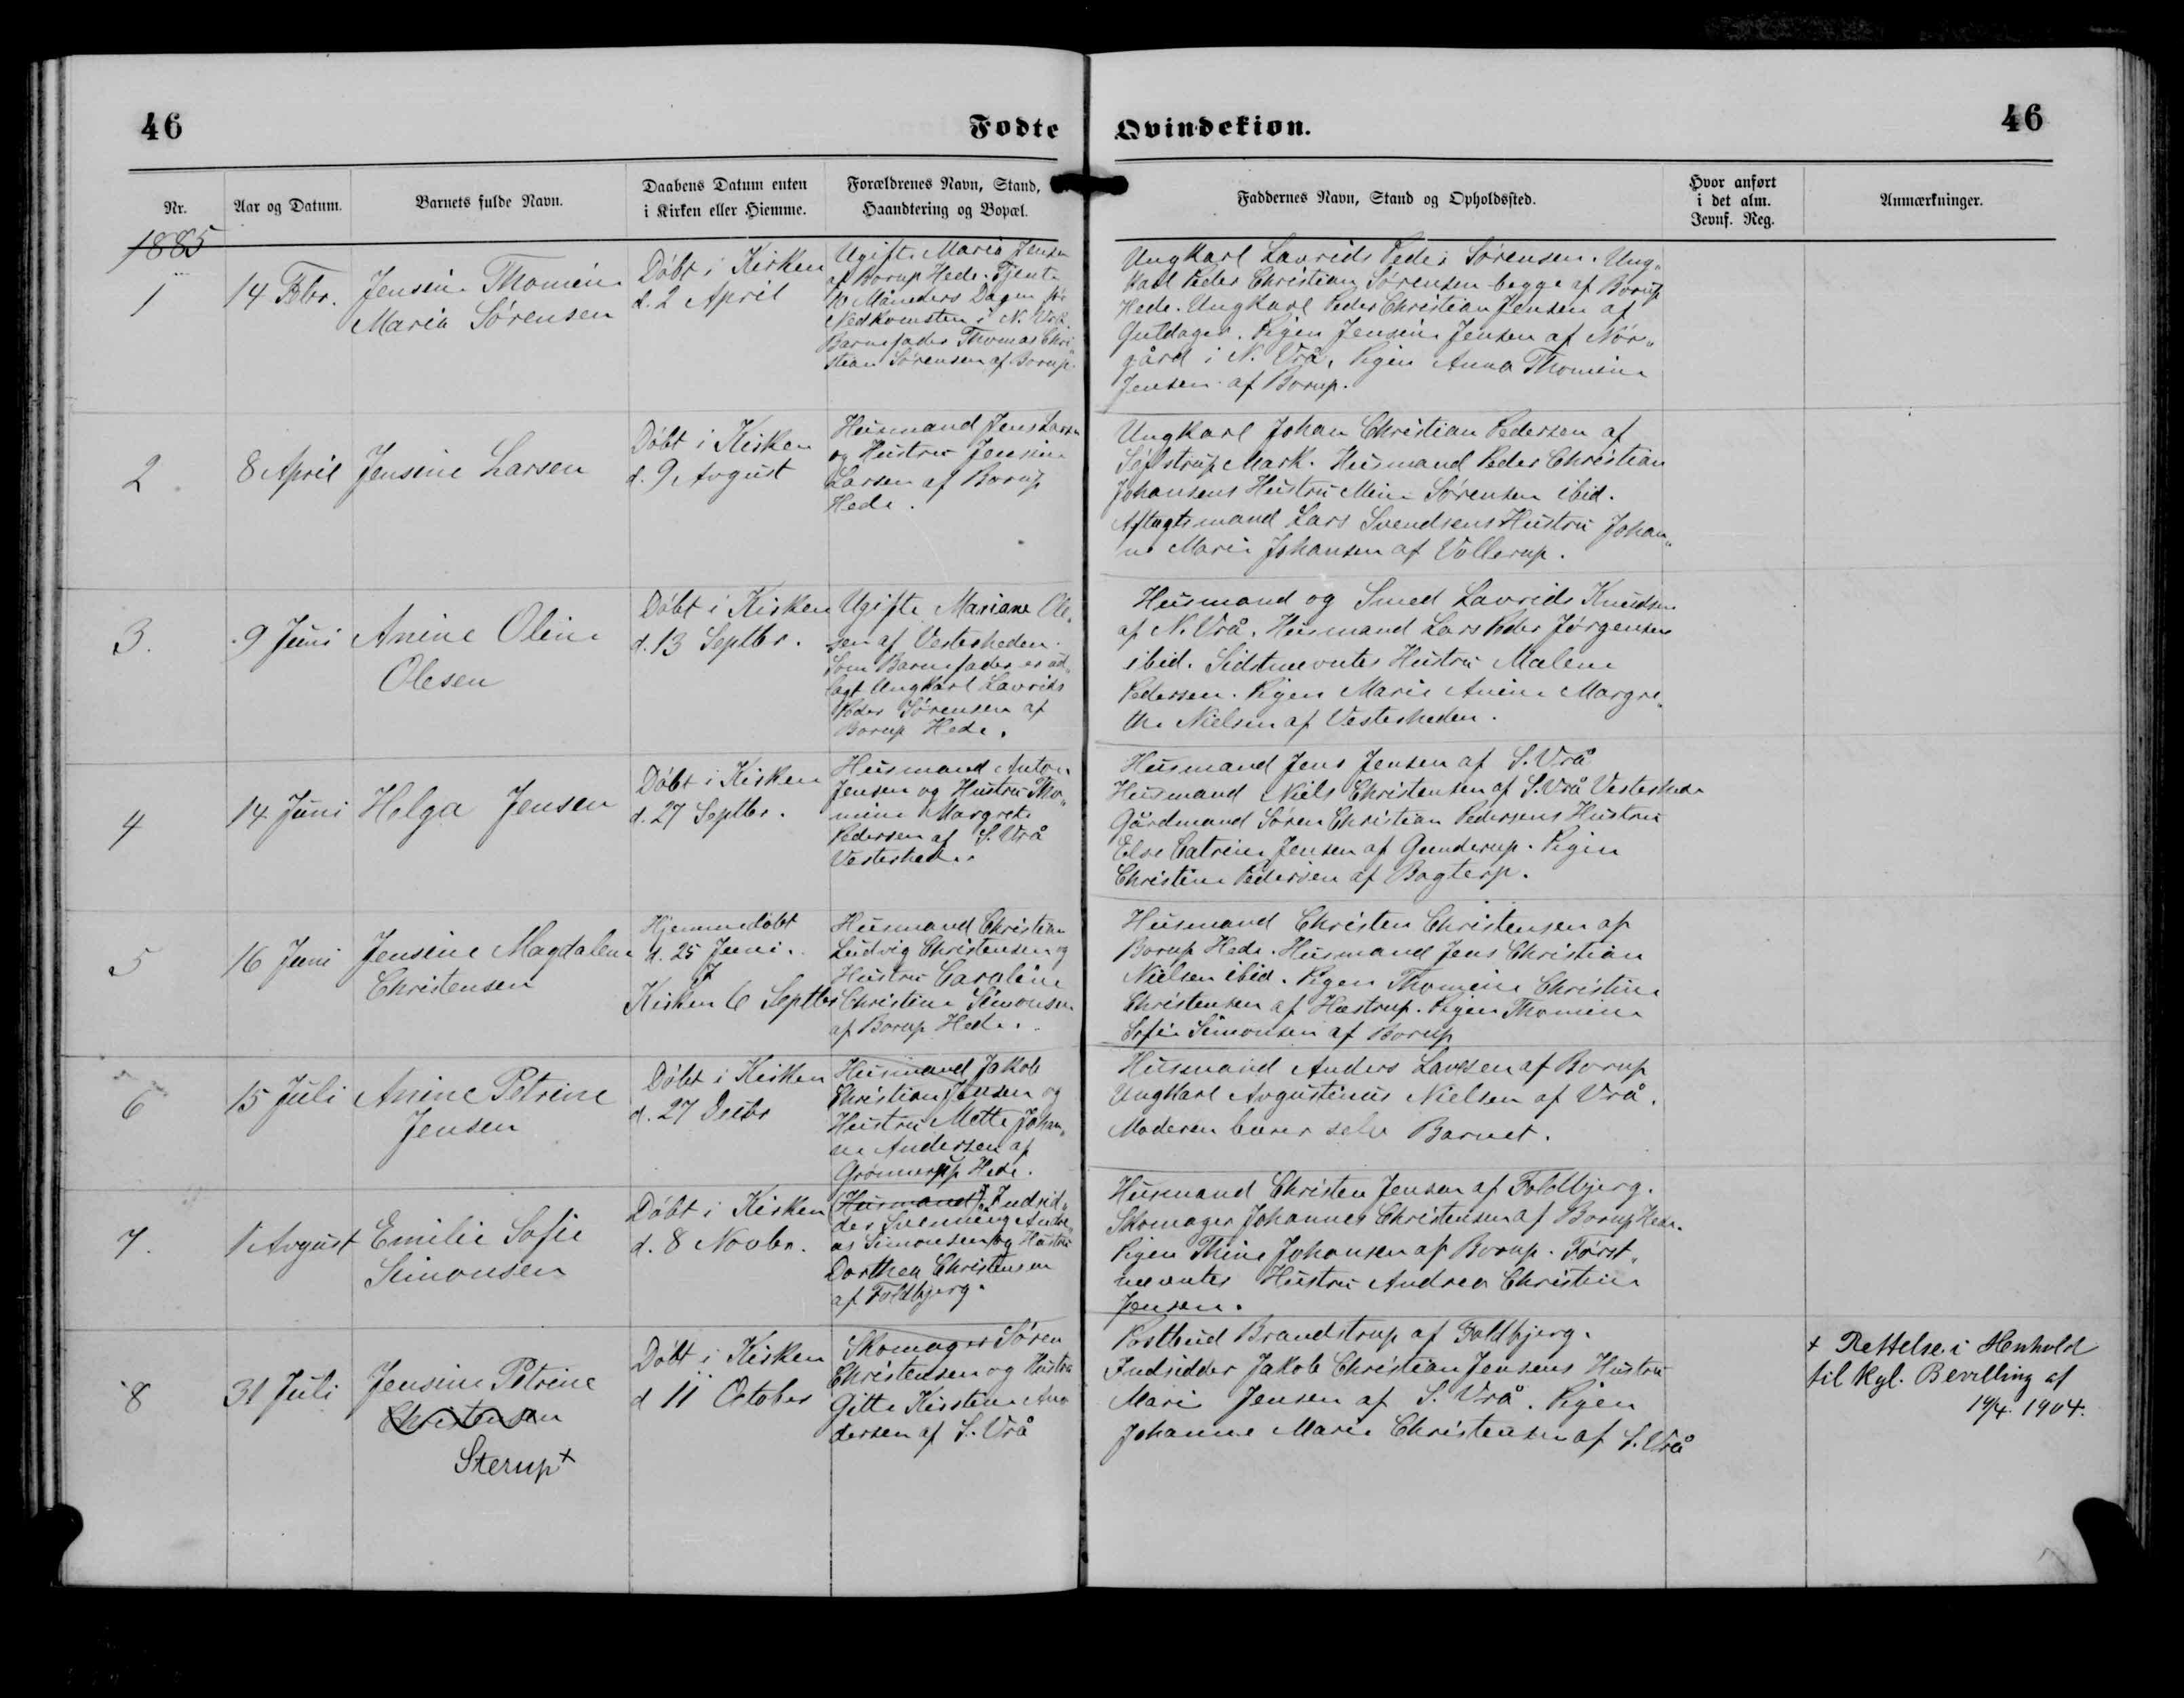 46
Fødte
Qvindekiøn.
46
Nr.
Aar og Datum.
Barnets fulde Navn.
Daabens Datum enten
i Kirken eller Hiemme.
Forældrenes Navn, Stand,
Haandtering og Bopæl.
Faddernes Navn, Stand og Opholdssted.
Hvor anført
i det alm.
Jevnf. Reg.
Anmærkninger.
1885
1
14 Febr.
Jensine Thomine
Maria Sørensen
Døbt i Kirken
d. 2 April
Ugifte Maria Jensen
af Borup Hede. Tjente
10 Måneders Dagen før
Nedkomsten i N. Vrå.
Barnefader Thomas Chri„
stian Sørensen af Borup.
Ungkarl Lavrids Peder Sørensen. Ung„
karl Peder Christian Sørensen begge af Borup
Hede. Ungkarl Peder Christian Jensen af
Guldager. Pigen Jensine Jensen af Nør„
gård i N. Vrå, Pigen Anna Thomine
Jensen af Borup.
2
8 April
Jensine Larsen
Døbt i Kirken
d. 9 Avgust
Husmand Jens Larsen
og Hustru Jensine
Larsen af Borup
Hede.
Ungkarl Johan Christian Pedersen af
Sejlstrup Mark. Husmand Peder Christian
Johansens Hustru Mine Sørensen ibid.
Aftægtsmand Lars Svendsens Hustru Johan„
ne Marie Johansen af Vollerup.
3.
9 Juni
Anine Oline
Olesen
Døbt i Kirken
d. 13 Septbr.
Ugifte Mariane Ole„
sen af Vesterheden.
Som Barnefader er ud„
lagt Ungkarl Lavrids
Peder Sørensen af
Borup Hede.
Husmand og Smed Lavrids Knudsen
af N. Vrå. Husmand Lars Peder Jørgensen
ibid. Sidstnævntes Hustru Malene
Pedersen. Pigen Marie Anine Margre„
the Nielsen af Vesterheden.
4
14 Juni
Helga Jensen
Døbt i Kirken
d. 27 Septbr.
Husmand Anton
Jensen og Hustru Tho„
mine Margrete
Pedersen af S. Vrå
Vesterhede.
Husmand Jens Jensen af S. Vrå
Husmand Niels Christensen af S. Vrå Vesterhede
Gårdmand Søren Christian Pedersens Hustru
Else Catrine Jensen af Gunderup. Pigen
Christine Pedersen af Bagterp.
5
16 Juni
Jensine Magdalene
Christensen
Hjemmedøbt
d. 25 Juni.
I
Kirken 6 Septbr
Husmand Christian
Ludvig Christensen og
Hustru Caroline
Christine Simonsen
af Borup Hede.
Husmand Christen Christensen af
Borup Hede. Husmand Jens Christian
Nielsen ibid. Pigen Thomine Christine
Christensen af Hæstrup. Pigen Thomine
Sofie Simonsen af Borup
6
15 Juli
Anine Petrine
Jensen
Døbt i Kirken
d. 27 Decbr
Husmand Jakob
Christian Jensen og
Hustru Mette Johan„
ne Andersen af
Grønnerup Hede.
Husmand Anders Larsen af Borup
Ungkarl Avgustinus Nielsen af Vrå.
Moderen bærer selv Barnet.
7.
1 Avgust
Emilie Sofie
Simonsen
Døbt i Kirken
d. 8 Novbr.
(Husmand) Indsid„
der Svenning Andre„
as Simonsen og Hustru
Dorthea Christensen
af Foldbjerg.
Husmand Christen Jensen af Foldbjerg.
Skomager Johannes Christensen af Borup Hede.
Pigen Thine Johansen af Borup. Først„
nævntes Hustru Andrea Christine
Jensen.
8
31 Juli
Jensine Petrine
Christensen
Sterup +
Døbt i Kirken
d 11 October
Skomager Søren
Christensen og Hustru
Gitte Kirstine An
dersen af S. Vrå
Postbud Brandstrup af Foldbjerg.
Indsidder Jakob Christian Jensens Hustru
Marie Jensen af S. Vrå. Pigen
Johanne Marie Christensen af S. Vrå
+ Rettelse i Henhold
til kgl. Bevilling af
19/4. 1904.